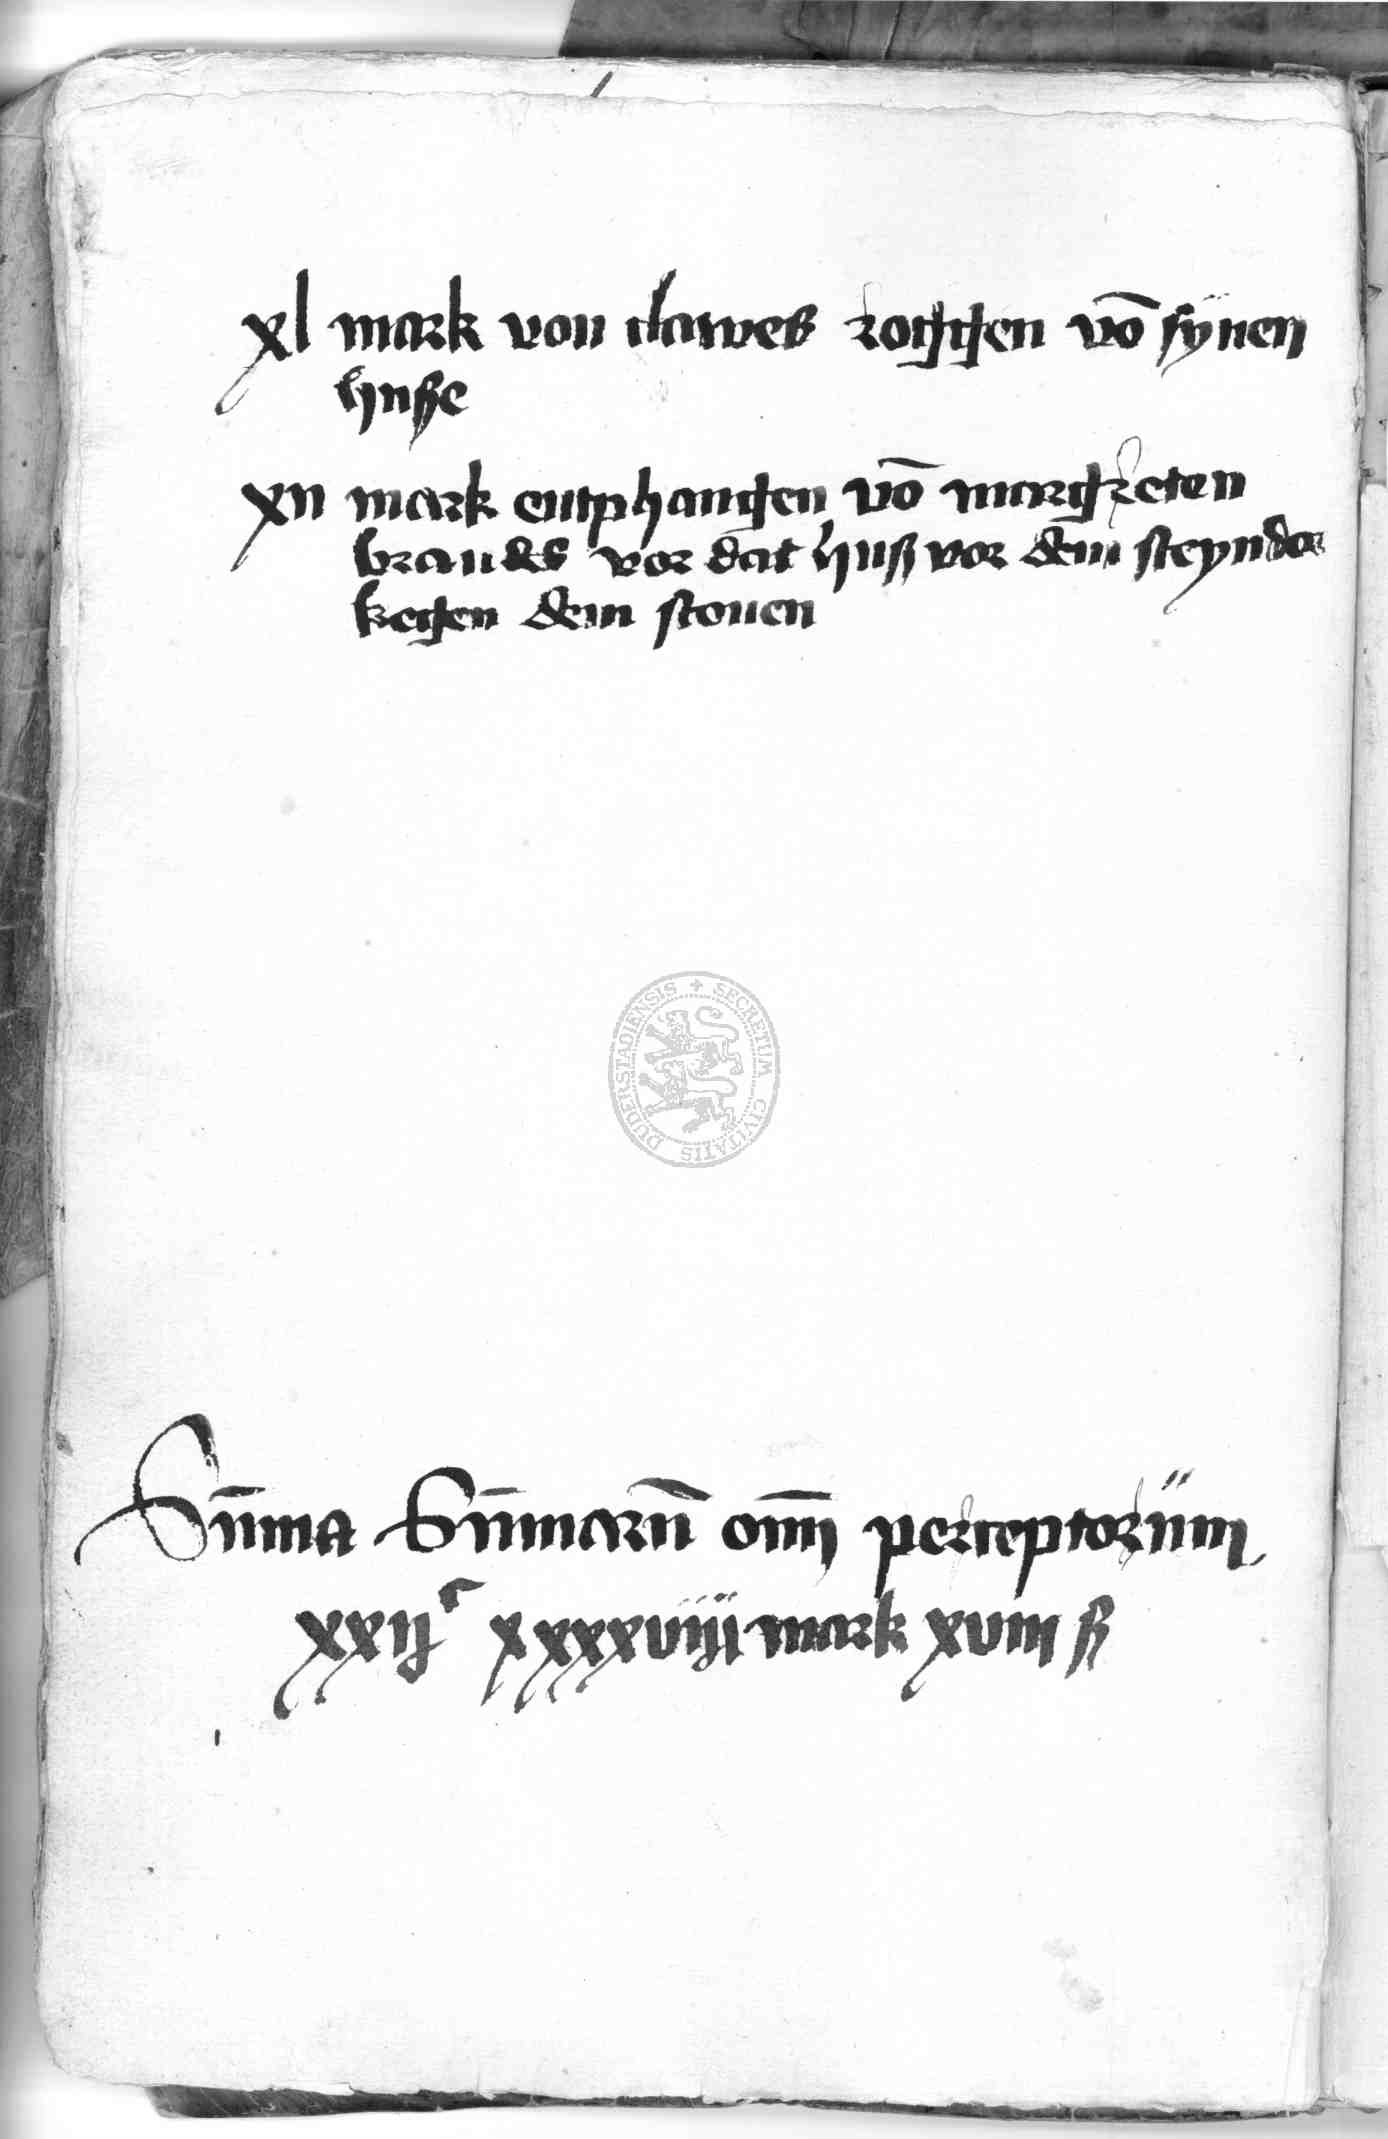 xl mark von clawes roggen vō sÿnen
huße
xii mark entphangen vō margreten
brandes vor dat huß vor dem steyndor
kegen dem stouen
SECRETUM CIVITATIS DUDERSTADIENSIS
Sūma Sūmarū om̄ perceptorum
xxiiᶜ xxxxviiii mark xviii ß